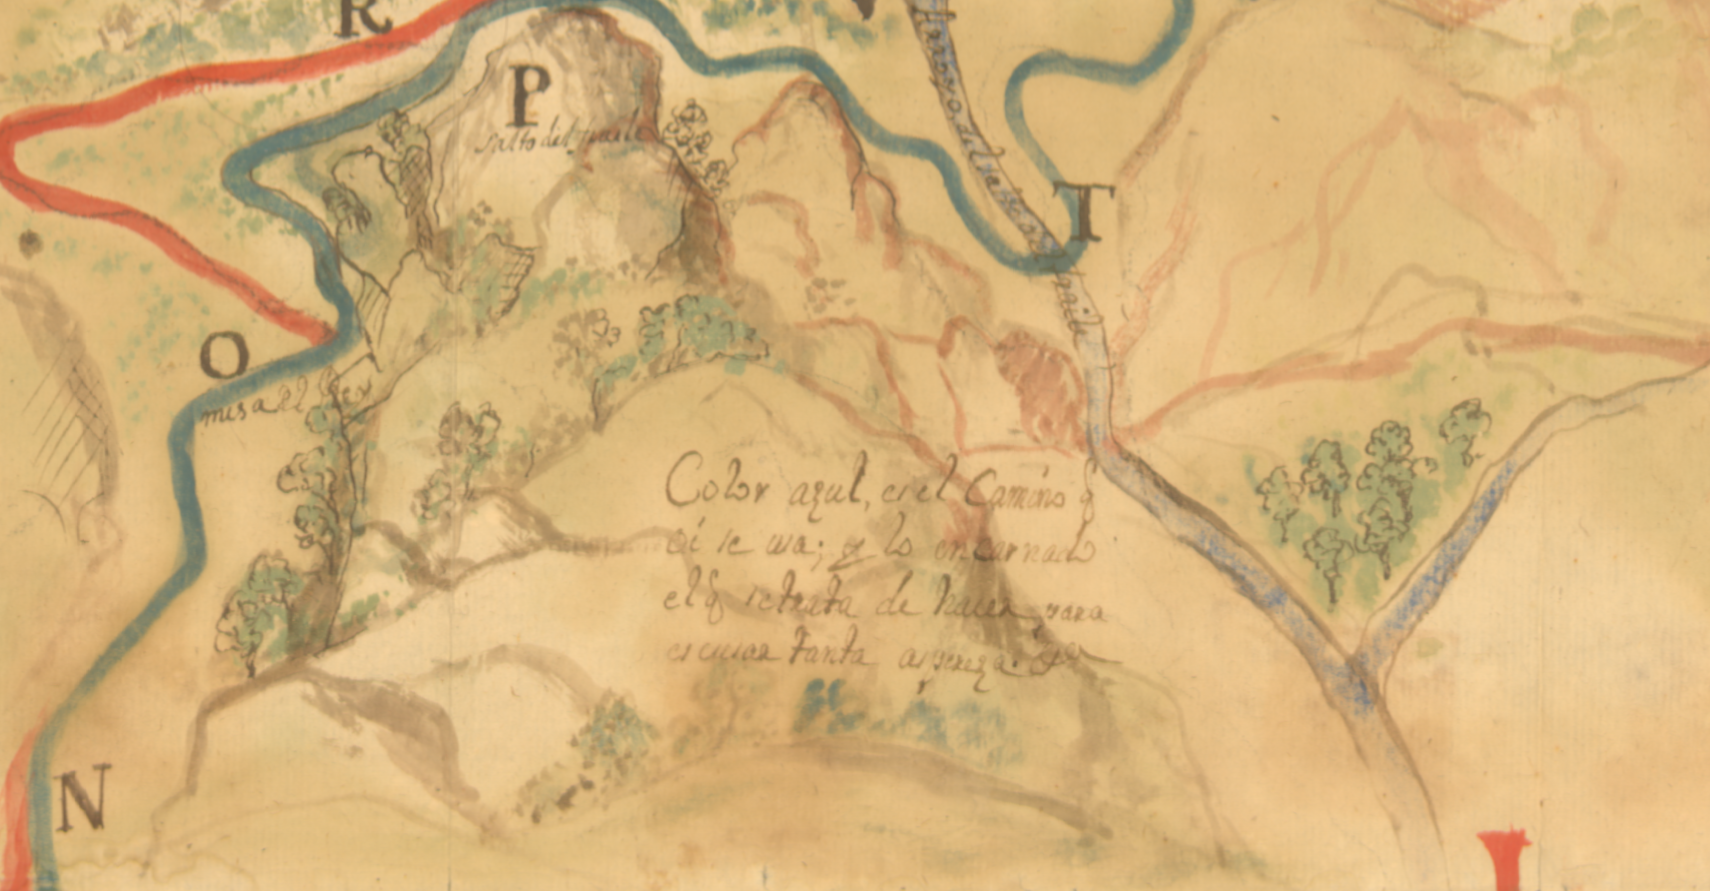 R
P
Salto del
T
O
mesa del
Color azul, es el Camino q̃
oi se usa; y lo encarnado
el q̃ se trata de hacer para
escusar tanta aspereza.
N
I